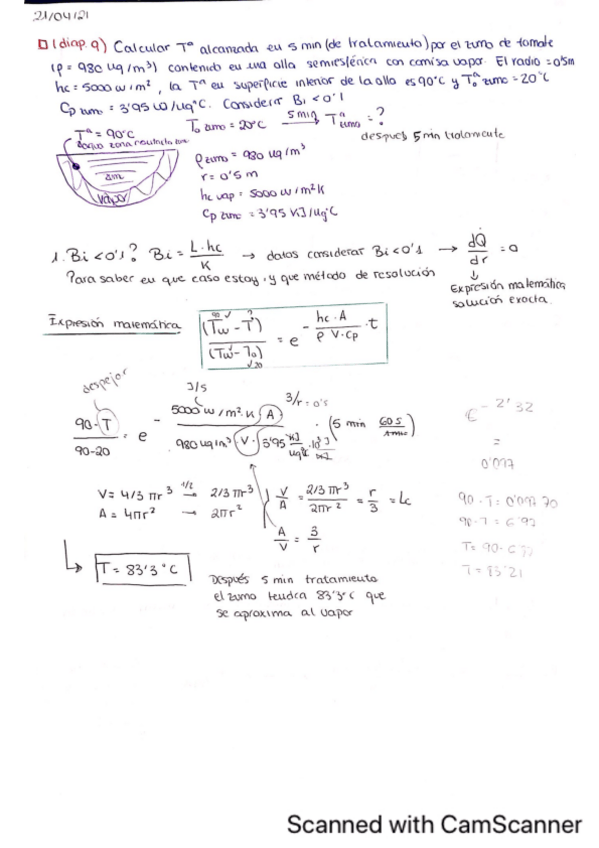 21/04/21
(diap. 9) Calcular Tª alcanzada en 5 min (de tratamiento) por el zumo de tomate
(ρ = 980 kg/m³) contenido en una olla semiesférica con camisa vapor. El radio = 0'5m
hc = 5000 w/m², la Tª en superficie interior de la olla es 90°C y T₀ª zumo = 20°C
Cp zumo = 3'95 W/kg°C. Considerar Bi < 0'1
T₀ zumo = 20°C 5 min Tª zumo = ?
después 5 min tratamiento
Tª = 90°C
vapor
ρ zumo = 980 kg/m³
r = 0'5 m
hc vap = 5000 w/m²K
Cp zumo = 3'95 KJ/kg°C
1. Bi < 0'1? Bi = L·hc / K → datos considerar Bi < 0'1 → dQ̇/dr = 0
Para saber en que caso estoy, y que método de resolución
Expresión matemática
solución exacta.
Expresión matemática
(Tw - T) / (Tw - T₀) = e^(- hc·A / ρ·V·Cp · t)
despejar
3/5
3/r = 0'5
90-T / 90-20 = e^- 5000 w/m²·K (A) / 980 kg/m³ (V) · 3'95 KJ/kg°C · 10³ J/KJ · (5 min 60 s / 1 min)
e^- 2'32
=
0'097
V = 4/3 πr³ 1/2 → 2/3 πr³
A = 4πr² → 2πr²
V/A = 2/3 πr³ / 2πr² = r/3 = Lc
A/V = 3/r
90-T = 0'097·70
T = 83'21
T = 83'3°C
Después 5 min tratamiento
el zumo tendrá 83'3°C que
se aproxima al vapor
Scanned with CamScanner